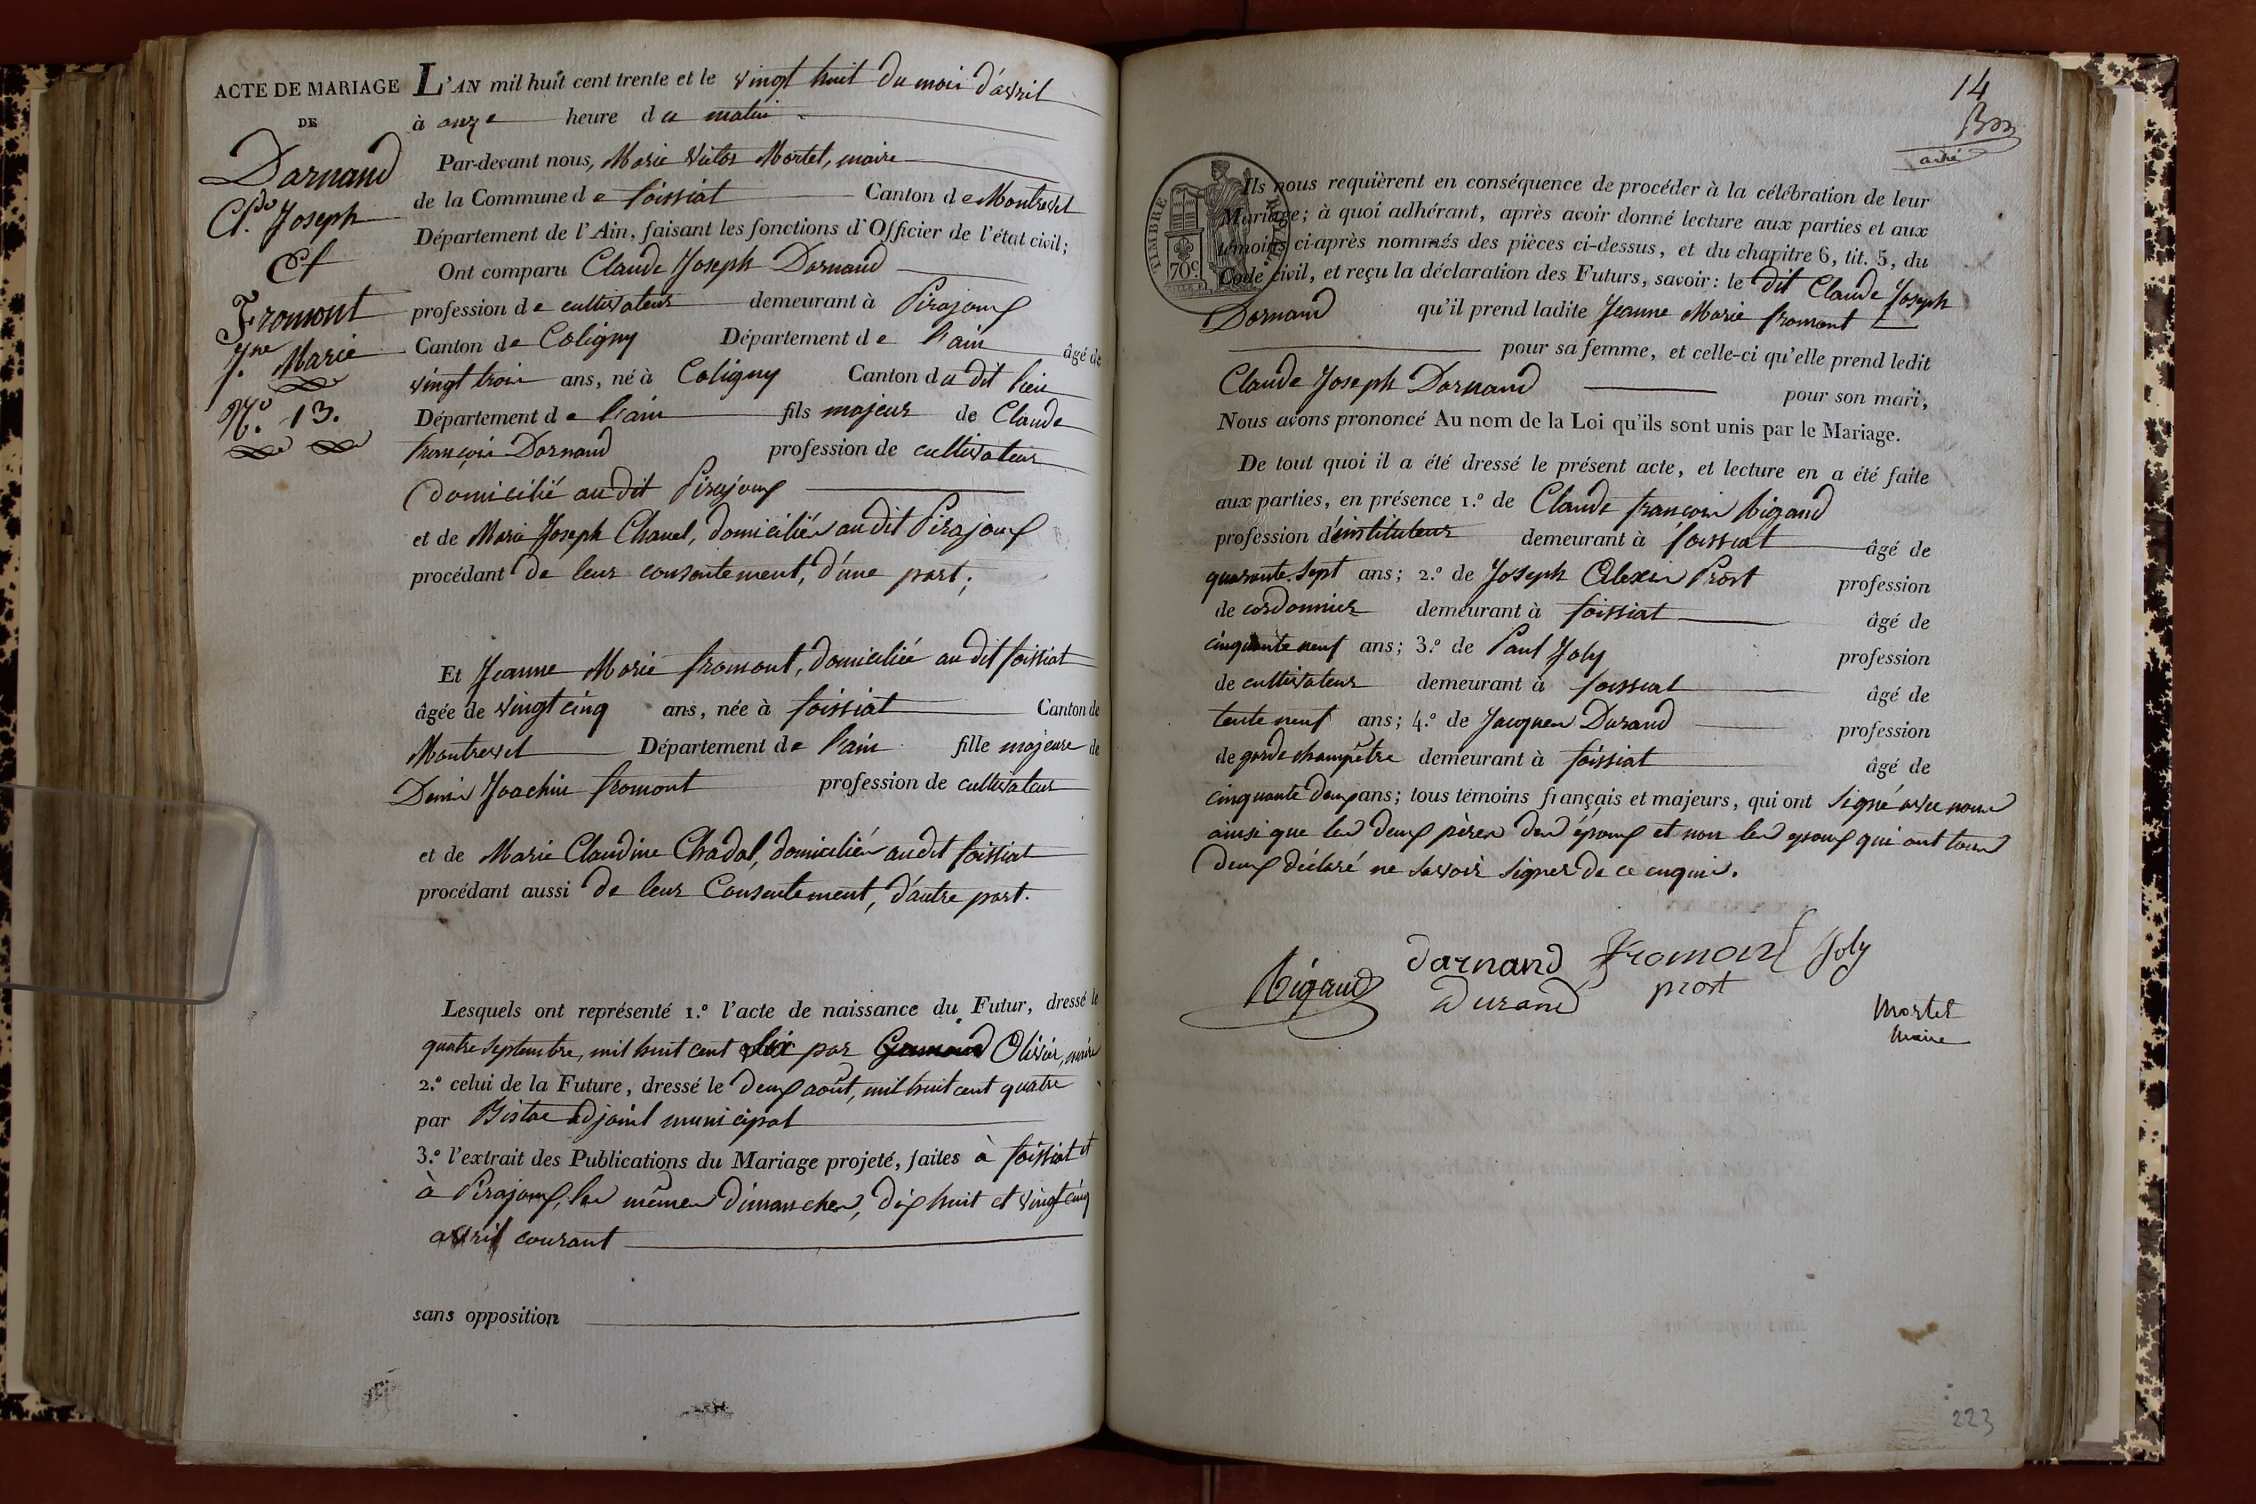 ACTE DE MARIAGE
DE
Darnand
Cl.de Joseph
Et
Fromont
J.ne Marie
N.o 13.
L'AN mil huit cent trente et le vingt huit du mois d'avril
à onze heure du matin
Par-devant nous, Marie Victor Mortel, maire
de la Commune de foissiat Canton de Montrevel
Département de l'Ain, faisant les fonctions d'Officier de l'état civil;
Ont comparu Claude Joseph Darnand
profession de cultivateur demeurant à Pirajoux
Canton de Coligny Département de l'ain âgé de
vingt trois ans, né à Coligny Canton du dit lieu
Département de l'ain fils majeur de Claude
françois Darnand profession de cultivateur
domicilié au dit Pirajoux
et de Marie Joseph Chanel, domiciliés au dit Pirajoux
procédant de leur consentement, d'une part;
Et Jeanne Marie fromont, domiciliée au dit foissiat
âgée de vingt cinq ans, née à foissiat Canton de
Montrevel Département de l'ain fille majeure de
Denis Joachin fromont profession de cultivateur
et de Marie Claudine Chadal, domiciliés audit foissiat
procédant aussi de leur Consentement, d'autre part.
Lesquels ont représenté 1.o l'acte de naissance du Futur, dressé le
quatre septembre, mil huit cent six par Olivier, maire
2.o celui de la Future, dressé le deux août, mil huit cent quatre
par adjoint municipal
3.o l'extrait des Publications du Mariage projeté, faites à foissiat et
à Pirajoux, les mêmes dimanches, dix huit et vingt cinq
avril courant
sans opposition
14
TIMBRE ROYAL
70c
Ils nous requièrent en conséquence de procéder à la célébration de leur
Mariage; à quoi adhérant, après avoir donné lecture aux parties et aux
témoins ci-après nommés des pièces ci-dessus, et du chapitre 6, tit. 5, du
Code civil, et reçu la déclaration des Futurs, savoir: le dit Claude Joseph
Darnand qu'il prend ladite Jeanne Marie fromont
pour sa femme, et celle-ci qu'elle prend ledit
Claude Joseph Darnand pour son mari,
Nous avons prononcé Au nom de la Loi qu'ils sont unis par le Mariage.
De tout quoi il a été dressé le présent acte, et lecture en a été faite
aux parties, en présence 1.o de Claude françois Rigaud
profession d'instituteur demeurant à foissiat âgé de
quarante sept ans; 2.o de Joseph Alexis Prost profession
de cordonnier demeurant à foissiat âgé de
cinquante neuf ans; 3.o de Paul Joly profession
de cultivateur demeurant à foissiat âgé de
tente neuf ans; 4.o de Jacques Durand profession
de garde champêtre demeurant à foissiat âgé de
cinquante deux ans; tous témoins français et majeurs, qui ont signé avec nous
ainsi que les deux pères des époux et non les époux qui ont tous
deux déclaré ne savoir signer de ce enquis.
Rigaud darnand fromont Joly
Durand prost
Mortel
Maire
223